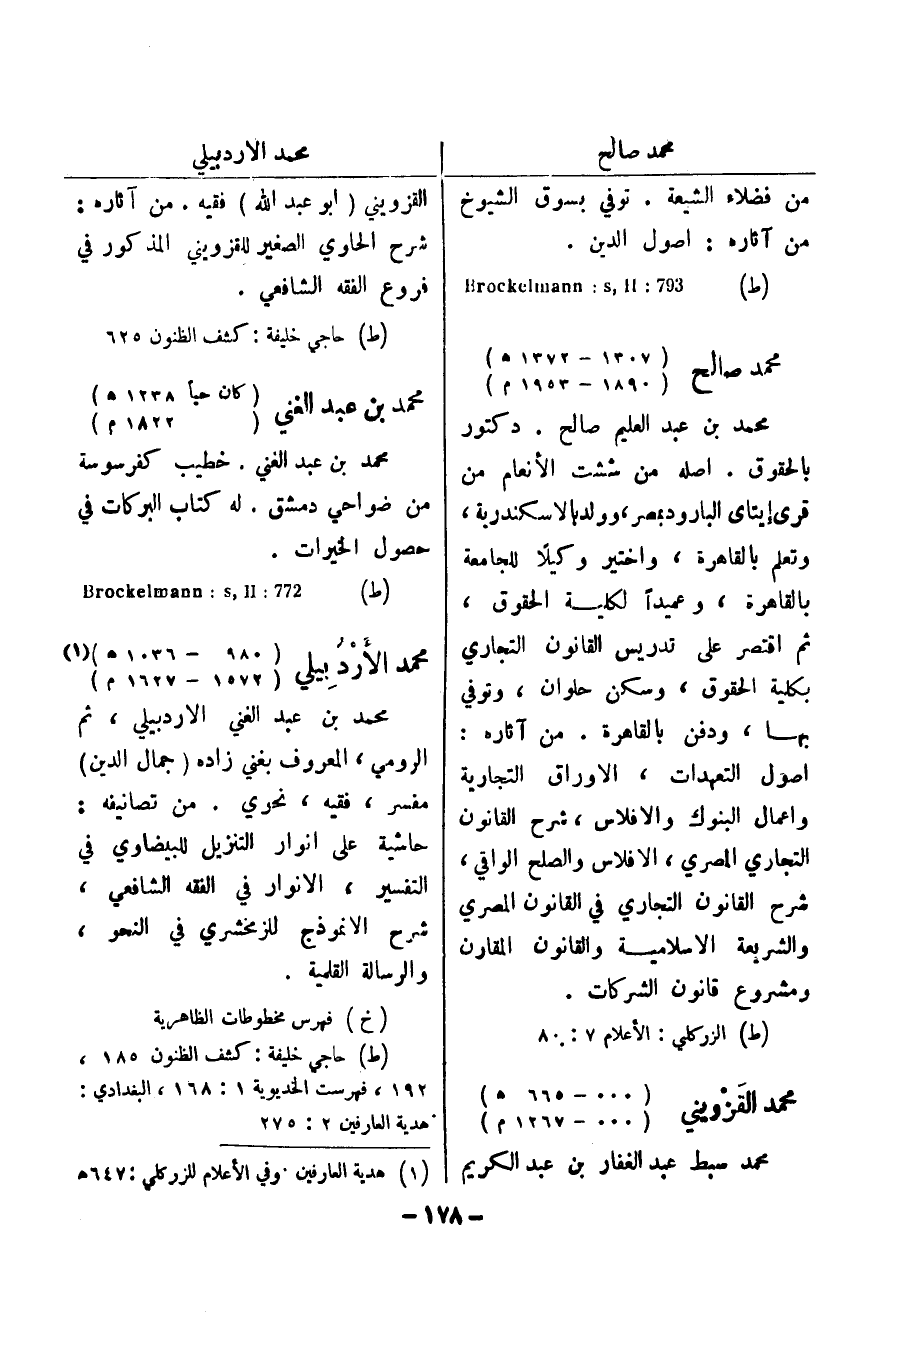 محمد صالح
من فضلاء الشيعة . توفي بسوق الشيوخ
من آثاره : اصول الدين .
(ط) Brockelmann : s, II : 793
محمد صالح ( ١٣٠٧ – ١٣٧٢ ه )
( ١٨٩٠ – ١٩٥٣ م )
محمد بن عبد العليم صالح . دكتور
بالحقوق . اصله من ششت الأنعام من
قرى إيتاى البارود بمصر، وولد بالاسكندرية ،
وتعلم بالقاهرة ، واختير وكيلًا للجامعة
بالقاهرة ، وعميداً لكلية الحقوق ،
ثم اقتصر على تدريس القانون التجاري
بكلية الحقوق ، وسكن حلوان ، وتوفي
بها ، ودفن بالقاهرة . من آثاره :
اصول التعهدات ، الاوراق التجارية
واعمال البنوك والافلاس ، شرح القانون
التجاري المصري ، الافلاس والصلح الواقي ،
شرح القانون التجاري في القانون المصري
والشريعة الاسلامية والقانون المقارن
ومشروع قانون الشركات .
(ط) الزركلي : الأعلام ٧ : ٨٠
محمد القَزْويني ( ٠٠٠ – ٦٦٥ ه )
( ٠٠٠ – ١٢٦٧ م )
محمد سبط عبد الغفار بن عبد الكريم
محمد الاردبيلي
القزويني ( ابو عبد الله ) فقيه . من آثاره :
شرح الحاوي الصغير للقزويني المذكور في
فروع الفقه الشافعي .
(ط) حاجي خليفة : كشف الظنون ٦٢٥
محمد بن عبد الغني ( كان حياً ١٢٣٨ ه )
( ١٨٢٢ م )
محمد بن عبد الغني . خطيب كفرسوسة
من ضواحي دمشق . له كتاب البركات في
حصول الخيرات .
(ط) Brockelmann : s, II : 772
محمد الأَرْدُبِيلي ( ٩٨٠ – ١٠٣٦ ه )(١)
( ١٥٧٢ – ١٦٢٧ م )
محمد بن عبد الغني الاردبيلي ، ثم
الرومي ، المعروف بغني زاده ( جمال الدين )
مفسر ، فقيه ، نحوي . من تصانيفه :
حاشية على انوار التنزيل للبيضاوي في
التفسير ، الانوار في الفقه الشافعي ،
شرح الانموذج للزمخشري في النحو ،
والرسالة القلمية .
(خ) فهرس مخطوطات الظاهرية
(ط) حاجي خليفة : كشف الظنون ١٨٥ ،
١٩٢ ، فهرست الخديوية ١ : ١٦٨ ، البغدادي :
هدية العارفين ٢ : ٢٧٥
(١) هدية العارفين وفي الأعلام للزركلي : ٦٤٧ه
– ١٧٨ –